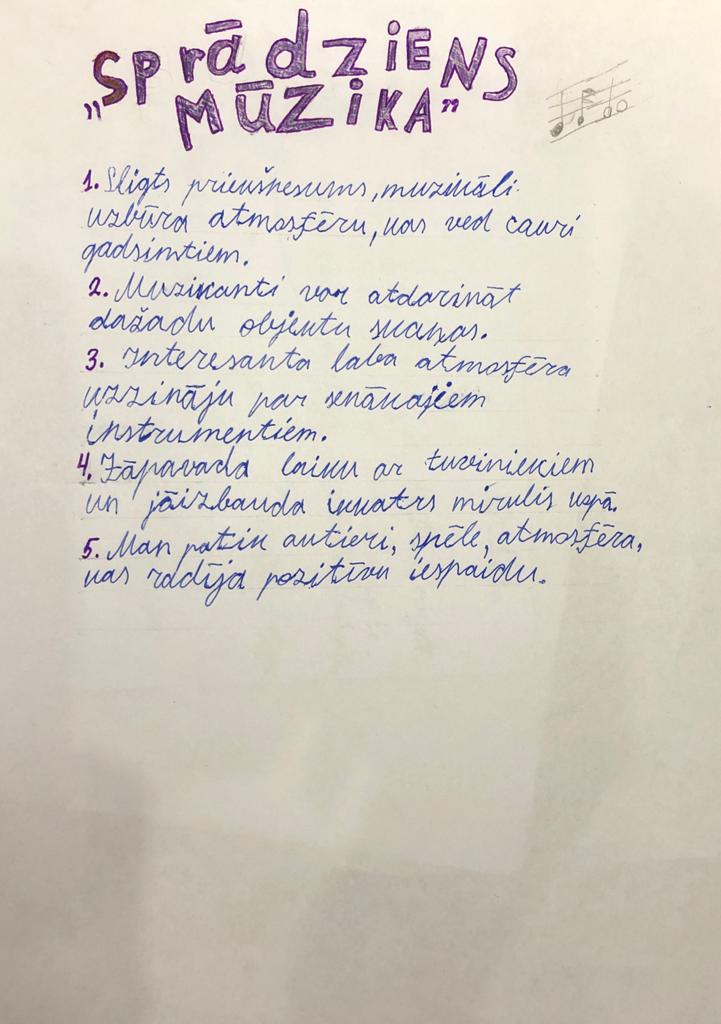 „SPrādziENS
MŪZiKA”
1. Sligts priekšnesums, muzikāli
uzbūra atmosfēru, kas ved cauri
gadsimtiem.
2. Muzikanti var atdarināt
dažadu objektu skaņas.
3. Interesanta laba atmosfēra
uzzināju par senākajiem
instrumentiem.
4. Jāpavada laiku ar tuviniekiem
un jāizbauda ikkatrs mirklis kopā.
5. Man patīk autieri, spēle, atmosfēra,
kas radīja pozitīvu iespaidu.